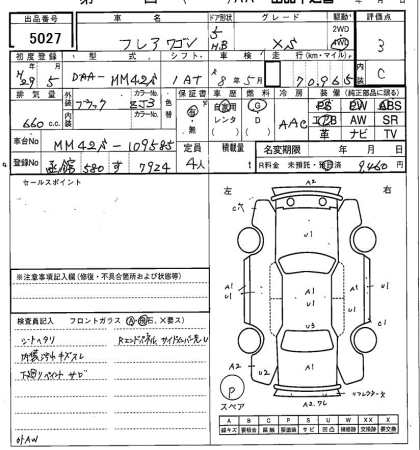 出品番号 車名 ドア形状 グレード 駆動 評価点
5027 フレアワゴン 5 HB XS 2WD 4WD 3
初度登録 型式 シフト 車検 走行(km・マイル) 内装
H29年5月 DAA-MM42S 1AT 年5月 70,965 C
排気量 外装 カラーNo. 色替 保証書 車歴 燃料 冷房 装備(純正部品に限る)
660 c.c. ブラック ZJ3 有・無 自家用 レンタ G D AAC PS PW ABS
内装 カラーNo. エアB AW SR
革 ナビ TV
車台No MM42S-109585 定員 積載量 名変期限 年 月 日
登録No 函館 580 す 7924 4人 t R料金 未預託・預託済 9460円
セールスポイント
左 右
A2
C穴
U1
A1 A1 A1
U1 U1
U1
U3
A1 A1 C1
A2 U2
P
スペア
リフレクターX
A2.ワレ
※注意事項記入欄(修復・不具合箇所および状態等)
検査員記入 フロントガラス(A・飛石、X要ス)
シートヘタリ Rエンドパネル サイドメンバー先U
内張汚れキズスレ
下廻りペイント サビ
社外AW
A B C P S U W X XX
線キズ 要板金 腐蝕 要塗装 サビ 凹凸 補修跡 交換跡 要交換